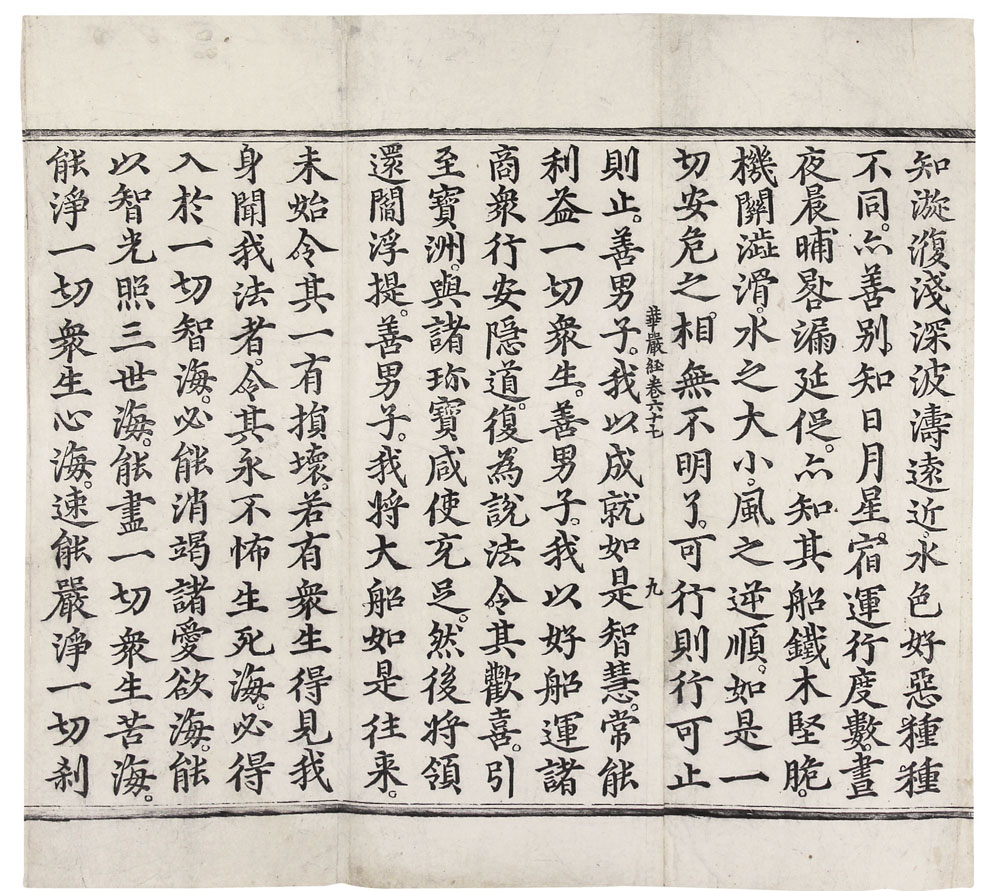 知漩澓淺深波濤遠近水色好惡種種
不同。亦善别知日月星宿運行度數。晝
夜晨晡晷漏延促。亦知其船鐵木堅脆。
機關澁滑。水之大小。風之逆順。如是一
切安危之相。無不明了。可行則行可止
華嚴經卷六十七 九
則止。善男子。我以成就如是智慧。常能
利益一切衆生。善男子。我以好船運諸
商衆行安隱道。復為説法令其歡喜。引
至寶洲。與諸珎寶咸使充足。然後將領
還閻浮提。善男子。我將大船如是往來。
未始令其一有損壞。若有衆生得見我
身聞我法者。令其永不怖生死海。必得
入於一切智海。必能消竭諸愛欲海。能
以智光照三世海。能盡一切衆生苦海。
能淨一切衆生心海。速能嚴淨一切刹